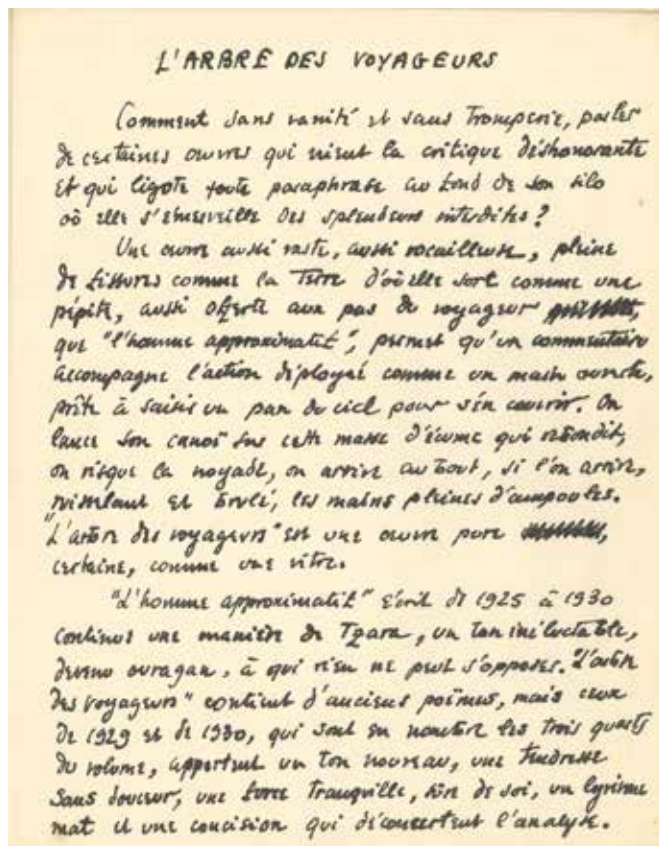 L'ARBRE DES VOYAGEURS
Comment sans vanité et sans tromperie, parler
de certaines œuvres qui nient la critique déshonorante
et qui ligote toute paraphrase au fond de son silo
où elle s'émerveille des splendeurs interdites ?
Une œuvre aussi vaste, aussi rocailleuse, pleine
de fissures comme la Terre d'où elle sort comme une
pépite, aussi offerte aux pas du voyageur
que "l'homme approximatif", permet qu'un commentaire
accompagne l'action déployé comme un main ouverte,
prête à saisir un pan du ciel pour s'en couvrir. On
lance son canoë sur cette masse d'écume qui rebondit,
on risque la noyade, on arrive au bout, si l'on arrive,
ruisselant et brulé, les mains pleines d'ampoules.
"L'arbre des voyageurs" est une œuvre pure
certaine, comme une vitre.
"L'homme approximatif" écrit de 1925 à 1930
continue une manière de Tzara, un ton inéluctable,
devenu ouragan, à qui rien ne peut s'opposer. "L'arbre
des voyageurs" contient d'anciens poèmes, mais ceux
de 1929 et de 1930, qui sont en nombre les trois quarts
du volume, apportent un ton nouveau, une tendresse
sans douceur, une force tranquille, sûre de soi, un lyrisme
mat et une concision qui déconcertent l'analyse.